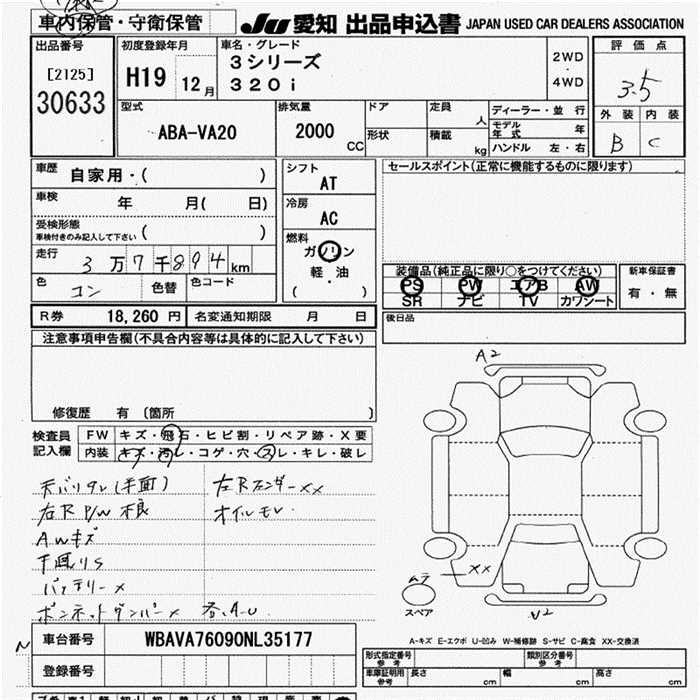 車内保管・守衛保管
JU 愛知 出品申込書 JAPAN USED CAR DEALERS ASSOCIATION
出品番号
[2125]
30633
初度登録年月
H19 12月
車名・グレード
3シリーズ
320i
2WD
・
4WD
評価点
3.5
外装 内装
B C
型式
ABA-VA20
排気量
2000
CC
ドア
定員
人
形状
積載
kg
ディーラー・並行
モデル年式 年
ハンドル 左・右
車歴
自家用・( )
車検
年 月( 日)
受検形態
車検付きのみ記入して下さい ( )
走行
3万7千894km
色
コン
色替
色コード
シフト
AT
冷房
AC
燃料
ガソリン
軽・油
( )
セールスポイント(正常に機能するものに限ります)
装備品(純正品に限り○をつけてください)
PS PW エアB AW
SR ナビ TV カワシート
新車保証書
有・無
後日品
R券 18,260円 名変通知期限 月 日
注意事項申告欄(不具合内容等は具体的に記入して下さい)
修復歴 有 〔箇所 〕
検査員
記入欄
FW キズ・飛石・ヒビ割・リペア跡・X要
内装 キズ・汚レ・コゲ・穴・スレ・キレ・破レ
天バリタレ(手面) 左Rフェンダーxx
右R P/W不良 オイルモレ
AWキズ
下廻りS
バッテリーx
ボンネットダンパーx
A2
xx
ムラ
スペア
V2
A-キズ E-エクボ U-凹み W-補修跡 S-サビ C-腐食 XX-交換済
N
車台番号
WBAVA76090NL35177
登録番号
形式指定番号
参考
類別区分番号
参考
車庫証明用
参考
長さ cm 幅 cm 高さ cm